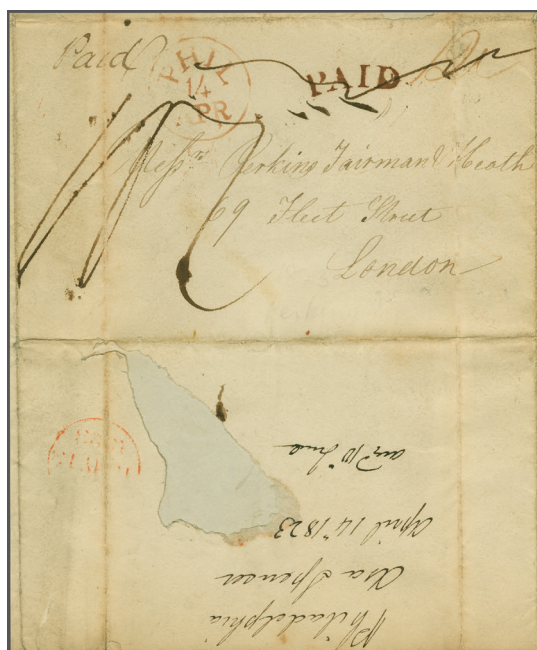 Paid
PHIL
14
APR
PAID
Mess.rs Perkins Fairman & Heath
69 Fleet Street
London
Philadelphia
Asa Spencer
April 14 1823